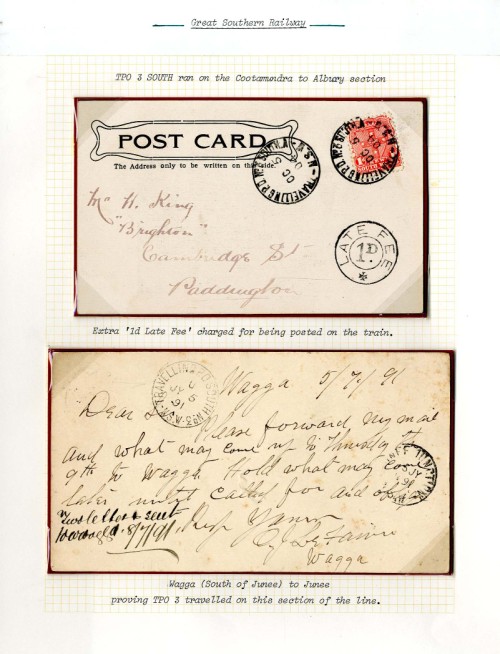 Great Southern Railway
TPO 3 SOUTH ran on the Cootamundra to Albury section
POST CARD
The Address only to be written on this side.
TRAVELLING P.O. No 3 SOUTH
N.S.W
LATE FEE
1D
Mr H. King
"Brighton"
Cambridge St
Paddington
Extra '1d Late Fee' charged for being posted on the train.
TRAVELLING P.O. SOUTH No 3 N.S.W
Wagga 5/7/91
Dear
Please forward my mail
and what may come up to Thursday
9th to Wagga. Hold what may come
later until called for and
Two letters sent
8/7/91
Yours
Wagga
JUNEE JUNCTION
Wagga (South of Junee) to Junee
proving TPO 3 travelled on this section of the line.